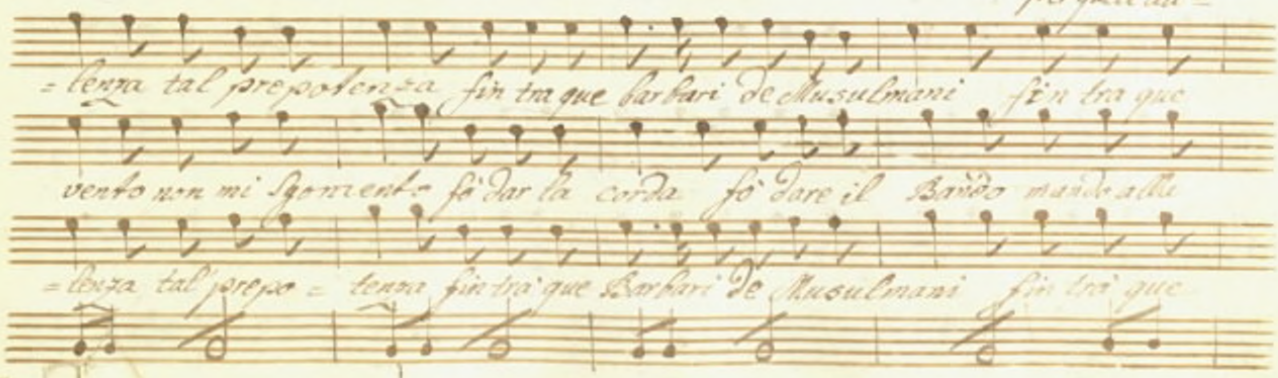 =lenza tal prepotenza fin tra que barbari de Musulmani fin tra que
vento non mi sgomento fò dar la corda fò dare il Bando mando alla
=lenza tal prepo = tenza fin trà que Barbari de Musulmani fin trà que